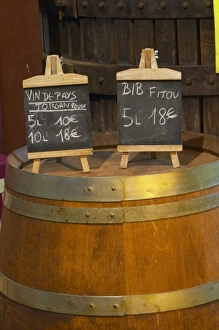 VIN DE PAYS
TORGAN ROUGE
5L 10€
10L 18€
BIB FITOU
5L 18€